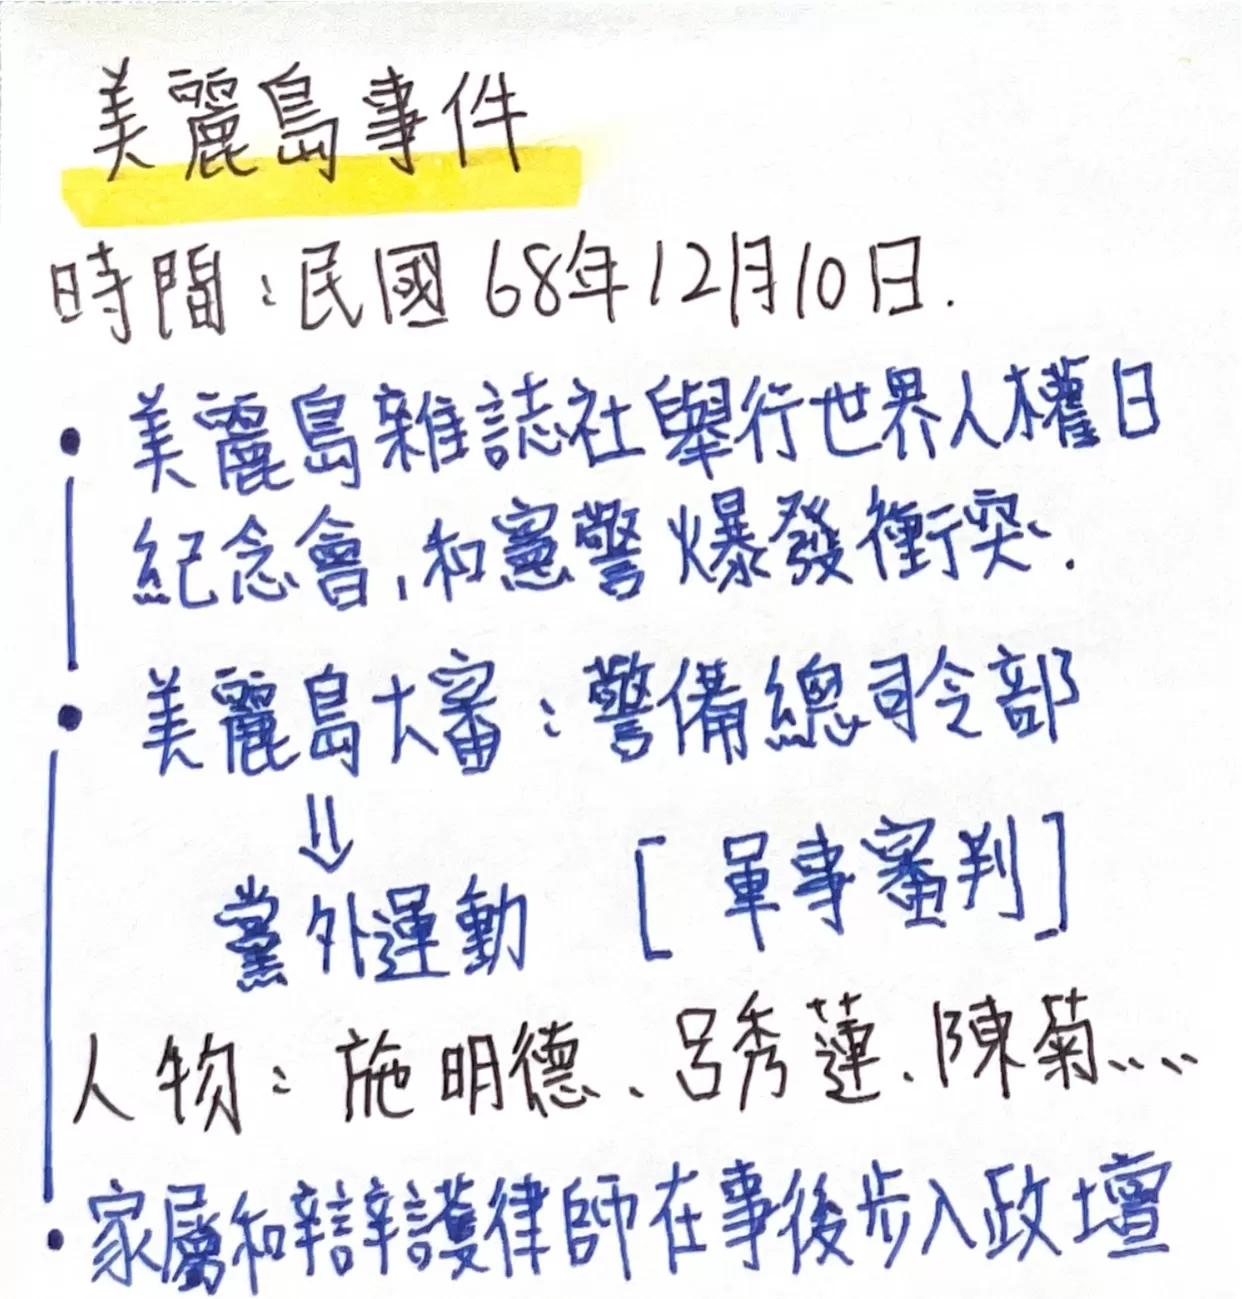 美麗島事件
時間：民國68年12月10日.
• 美麗島雜誌社舉行世界人權日
紀念會,和憲警爆發衝突.
• 美麗島大審：警備總司令部
⇓
黨外運動 [軍事審判]
人物：施明德、呂秀蓮、陳菊....
• 家屬和辯護律師在事後步入政壇